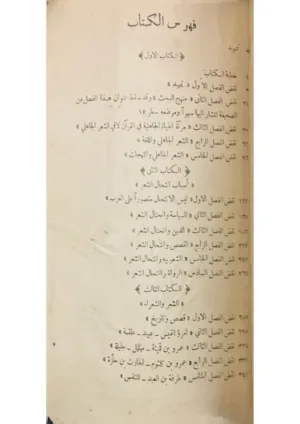 فهرس الكتاب
تمهيد
﴿ الكتاب الاول ﴾
خطبة الكتاب
نقض الفصل الأول « تمهيد »
نقض الفصل الثاني « منهج البحث » وقد سقط عنوان هذا الفصل من
الصحيفة المشار اليها سهواً وموضعه سطر ١٢
نقض الفصل الثالث « مرآة الحياة الجاهلية في القرآن لافي الشعر الجاهلي »
نقض الفصل الرابع « الشعر الجاهلي واللغة »
نقض الفصل الخامس « الشعر الجاهلي واللهجات »
﴿ الكتاب الثاني ﴾
« أسباب انتحال الشعر »
نقض الفصل الاول « ليس الانتحال مقصوراً على العرب »
نقض الفصل الثاني « السياسة وانتحال الشعر »
نقض الفصل الثالث « الدين وانتحال الشعر »
نقض الفصل الرابع « القصص وانتحال الشعر »
نقض الفصل الخامس « الشعوبية وانتحال الشعر »
نقض الفصل السادس « الرواة وانتحال الشعر »
﴿ الكتاب الثالث ﴾
« الشعر والشعراء »
نقض الفصل الاول « قصص وتاريخ »
نقض الفصل الثاني « امرؤ القيس ــ عبيد ــ علقمة »
نقض الفصل الثالث « عمرو بن قميئة ــ مهلهل ــ جليلة »
نقض الفصل الرابع « عمرو بن كلثوم ــ الحارث بن حلزة »
نقض الفصل الخامس « طرفة بن العبد ــ المتلمس »